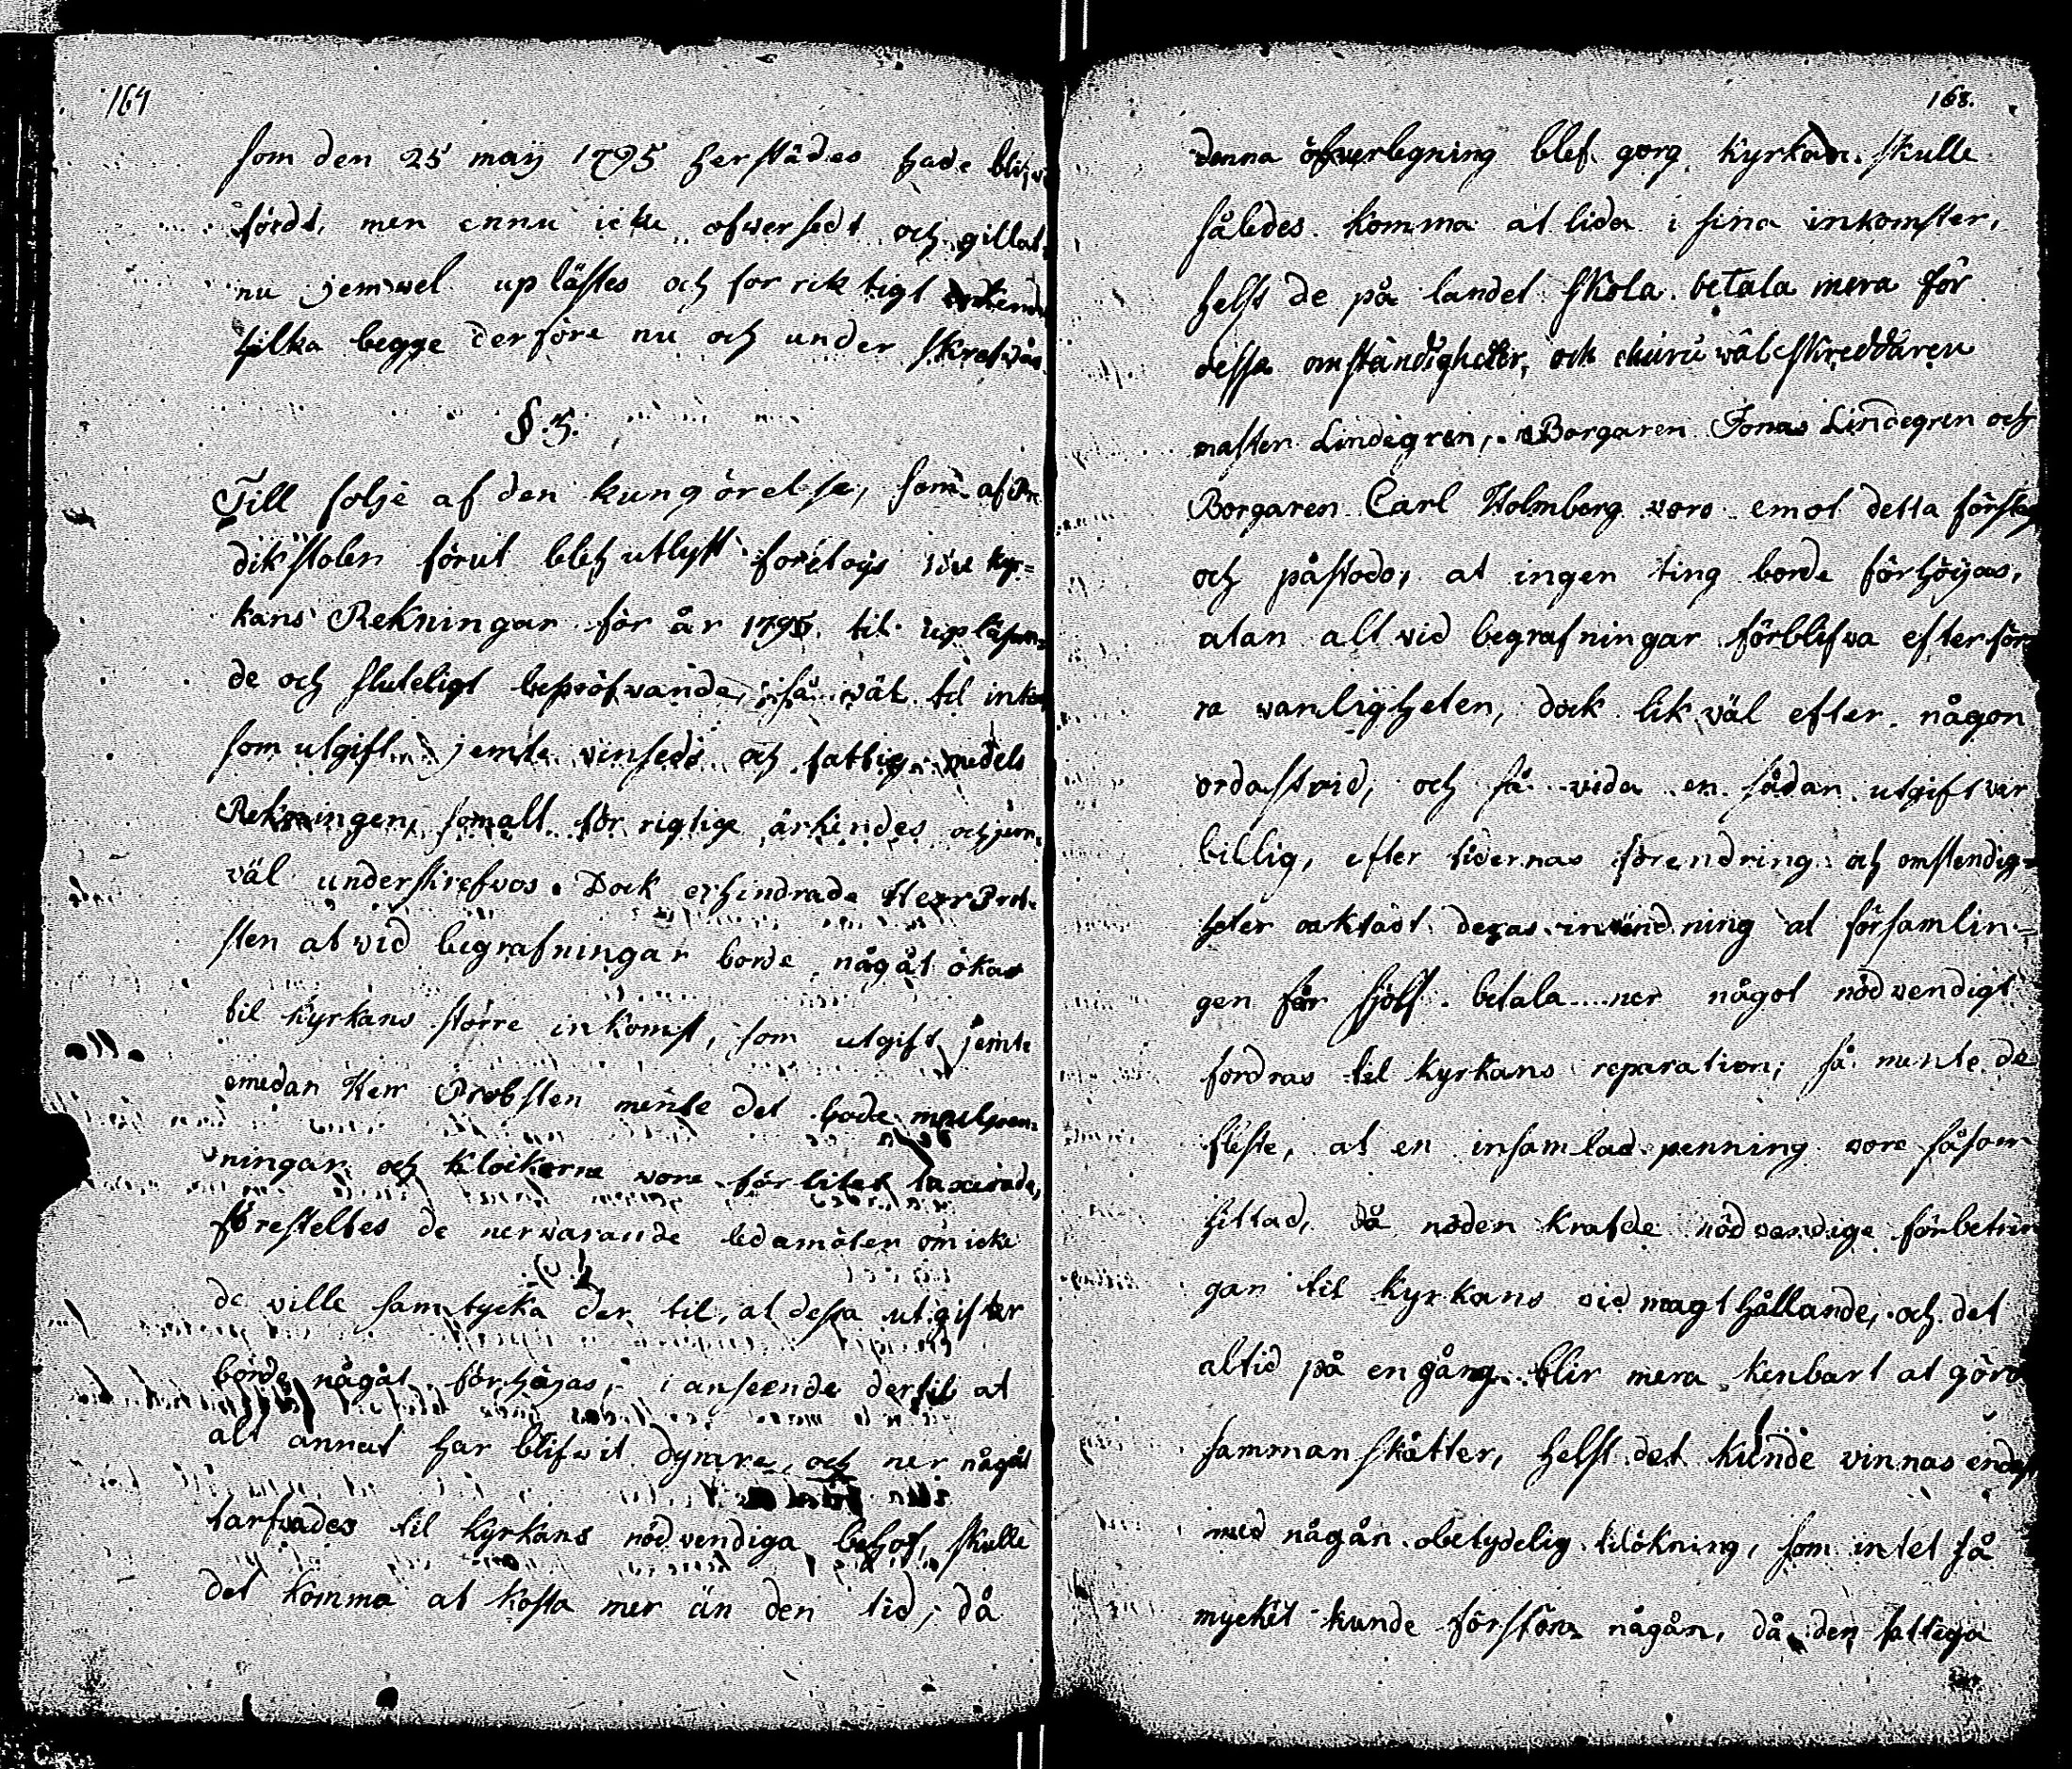 164
som den 25 maij 1795 herstädes hade blif,
fördt, men ennu icke ofwersedt och gillat,
nu jemwel uplästes och for riktigt erkend
hilka begge derföre nu och under skrefwos
§. 5.
Till folje af den kungörelse, som af Pre
dikstolen förut blef utlyst foretogs nu Kyr=
kans Rekningar för år 1795. til uplässan=
de och sluteligt bepröfwande, så wäl til inkom
som utgift jemte vinsedi och fattig medels
Rekningen, som alt för rigtige ärkendes och jem
väl underskrefvos. Dock erhindrade Herr Prob
sten at vid begrafningar borde någåt ökas
til kyrkans större inkomst, som utgift jemte
emedan Herr Probsten mente det både
ningar och klockorne wore för litet taxerade,
föresteltes de nerwarande ledamöter om icke
de ville samtycka der til, at dessa utgifter
borde någåt förhöjas, i anseende dertil at
alt annat har blifwit dyrare, och ner någåt
tarfvades til Kyrkans nödvendiga behof, skulle
det komma at kosta mer än den tid, då
168.
denna öfverlegning blef gorg, kyrkan skulle
således komma at lida i sina inkomster,
helst de på landet skola betala mera för
dessa omständigheter, och ehuru wäl skreddaren
mäster Lindegren, Borgaren Jonas Lindegren och
Borgaren Carl Holmberg voro emot detta förslag
och påstodo, at ingen ting borde förhöijas,
utan alt vid begrafningar förblifva efter för
ra wanligheten, dock lik väl efter någon
ordastrid, och så vida en sådan utgift var
billig, efter tidernas förendring och omstendig=
heter oaktadt deras invändning at församlin=
gen får sjelf betala ner något nödvendigt
fordras til kyrkans reparation, så mente de
fleste, at en insamlad penning vore såsom
hittad, då nöden krafde nödvendige förbettrin
gar til kyrkans vid magt hållande, och det
altid på en gång blir mera kenbart at göra
samman skåtter, helst det kunde vinnas endast
med någån obetydelig tilökning, som intet så
myckit kunde förstöra någån, då den fattiga